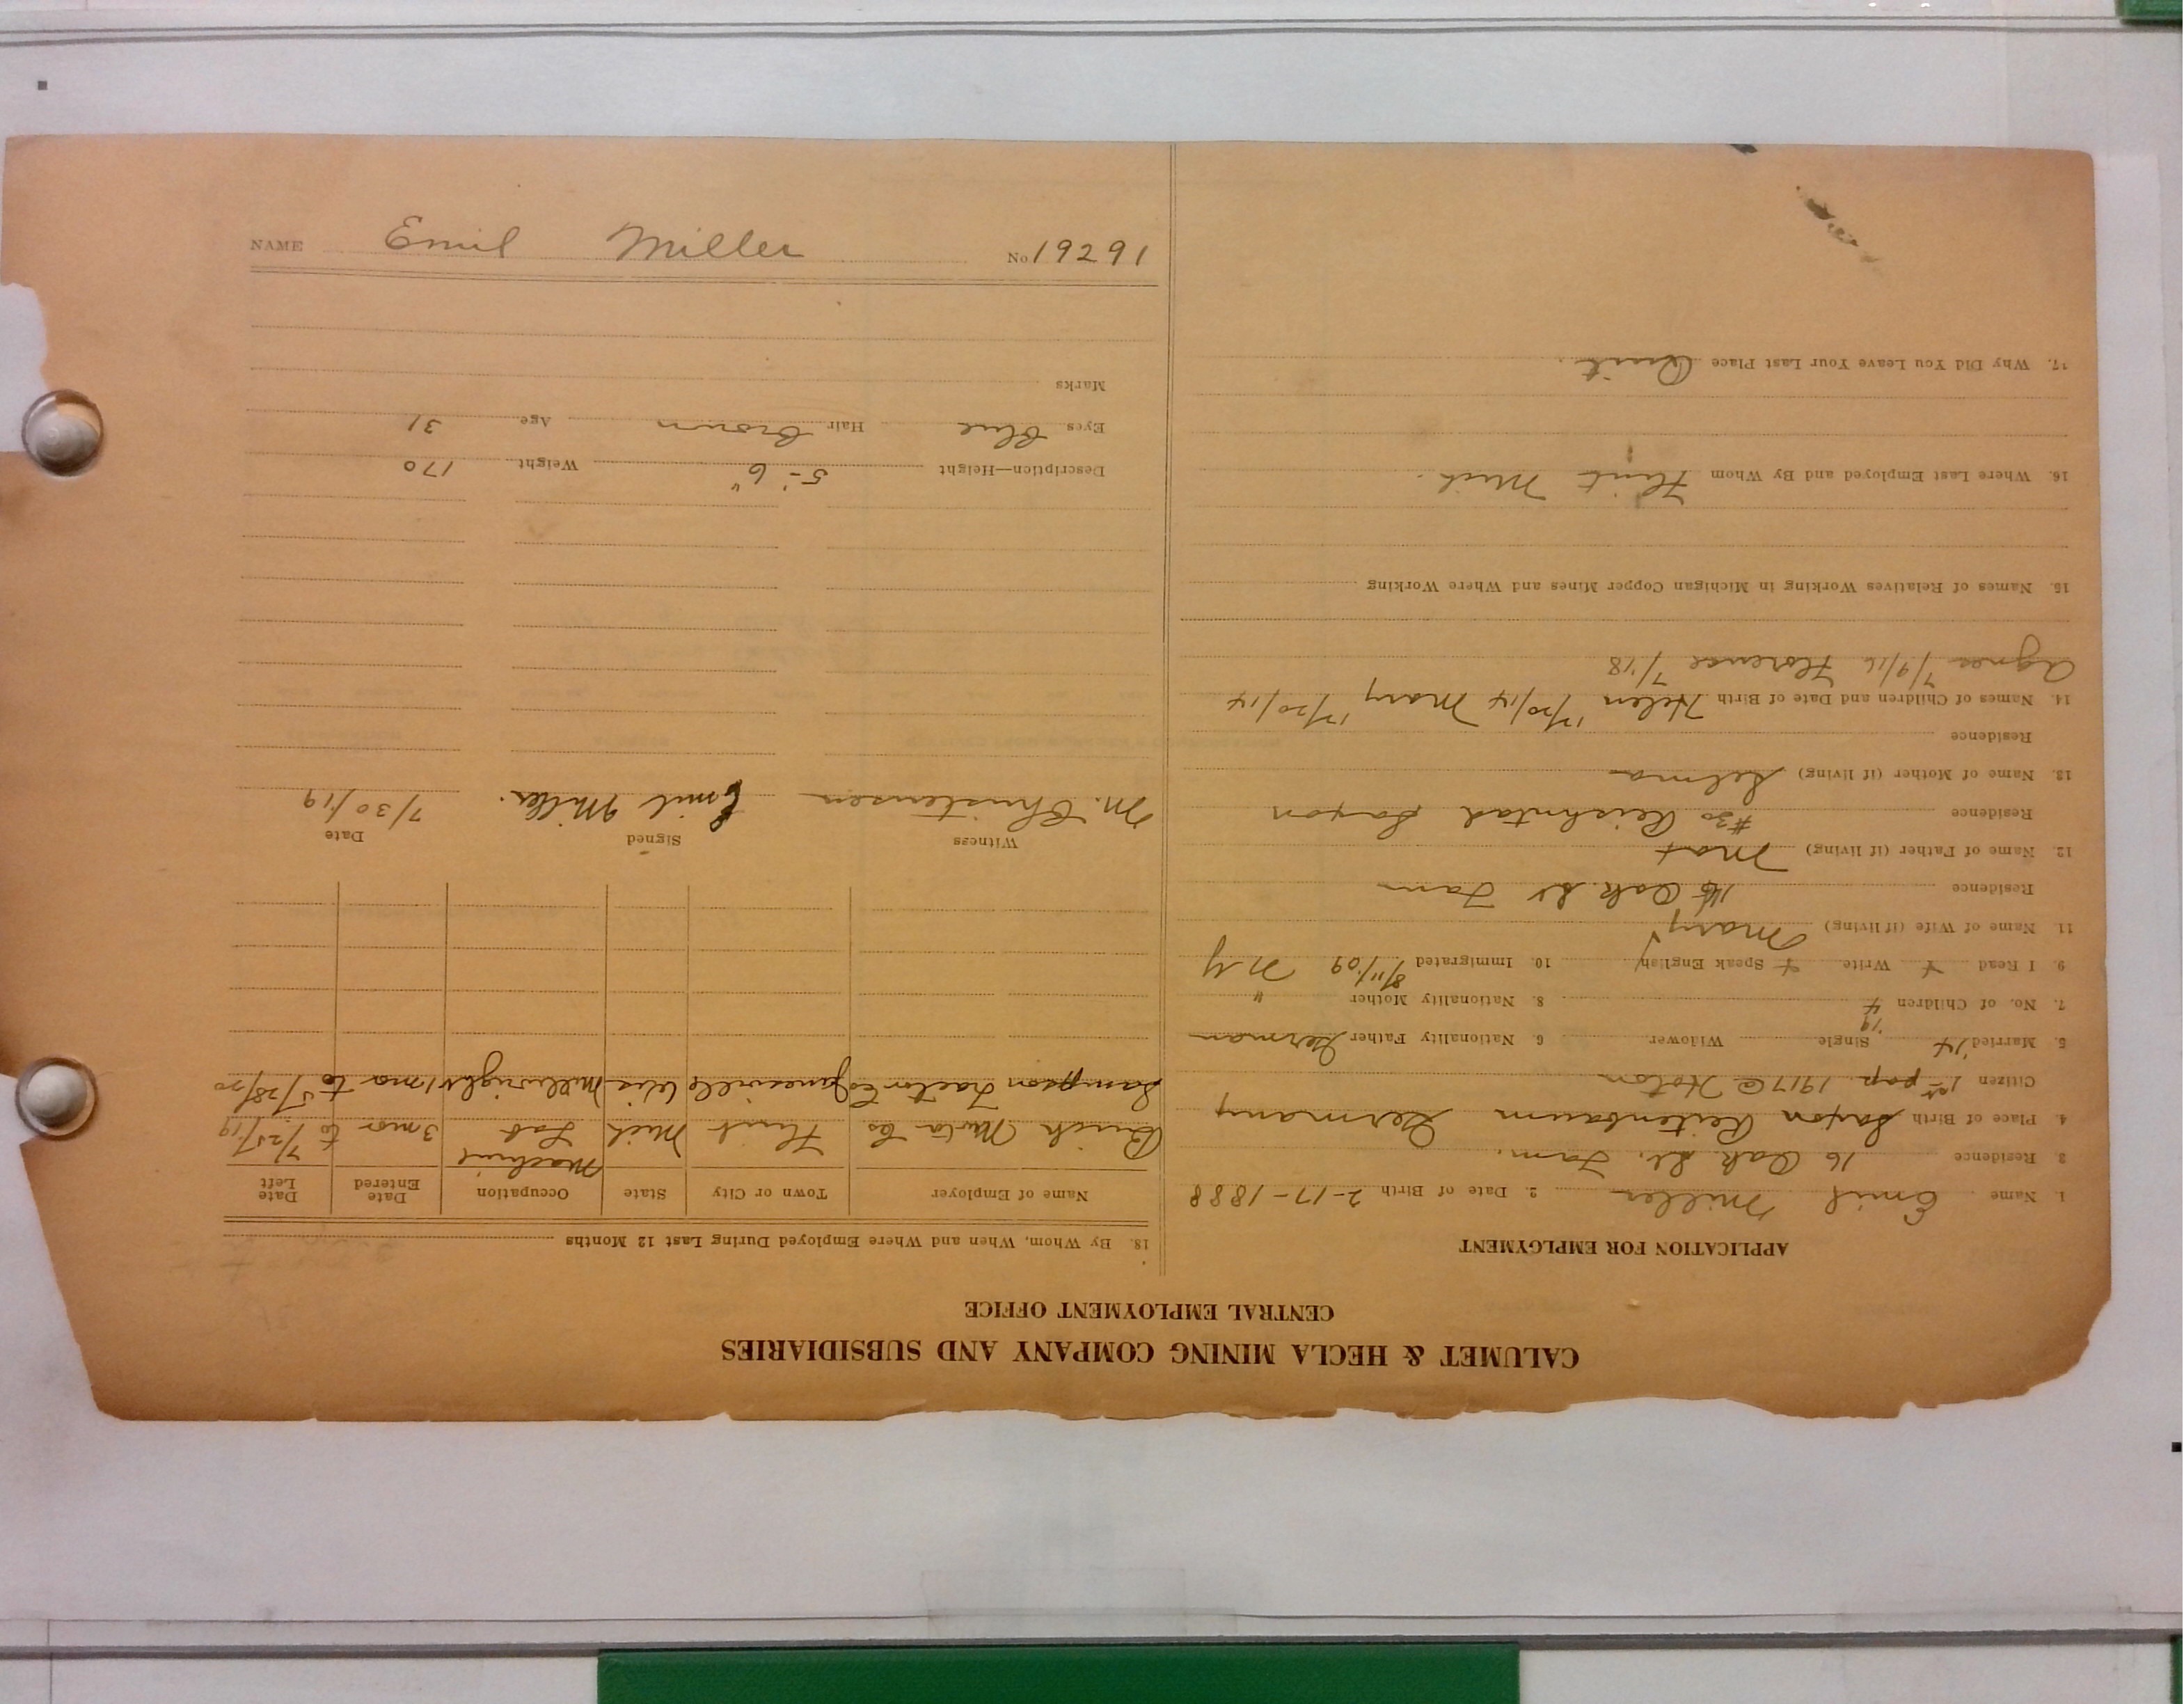 CALUMET & HECLA MINING COMPANY AND SUBSIDIARIES
CENTRAL EMPLOYMENT OFFICE
APPLICATION FOR EMPLOYMENT
1. Name Emil Miller 2. Date of Birth 2-17-1888
3. Residence 16 Oak St. Tam.
4. Place of Birth Saxon Germany
Citizen 1st pap. 1917 @ Hoton
5. Married '14 Single Widower 6. Nationality Father German
7. No. of Children 4 8. Nationality Mother "
9. I Read + Write + Speak English 10. Immigrated 8/11/09 N Y
11. Name of Wife (if living) Mary
Residence 16 Oak St Tam
12. Name of Father (if living) Mat
Residence #30 Saxon
13. Name of Mother (if living) Selma
Residence
14. Names of Children and Date of Birth Helen 12/20/14 Mary 12/20/14
Agnes 7/9/16 Florence 7/'18
15. Names of Relatives Working in Michigan Copper Mines and Where Working
16. Where Last Employed and By Whom Flint Mich.
17. Why Did You Leave Your Last Place Quit.
18. By Whom, When and Where Employed During Last 12 Months
Name of Employer Town or City State Occupation Date Entered Date Left
Buick Motor Co Flint Mich Machine Lab 3 mos to 7/25/19
Sampson Tractor Co Janesville Wis Millwright 1 mo to 5/28/20
Witness Signed Date
M. Christensen Emil Miller. 7/30/19
Description—Height 5'-6" Weight 170
Eyes Blue Hair Brown Age 31
Marks
NAME Emil Miller No 19291